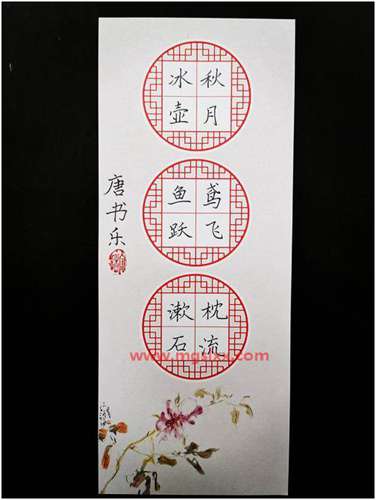 秋月
冰壶
鸢飞
鱼跃
枕流
漱石
唐书乐
www.mgslxx.com